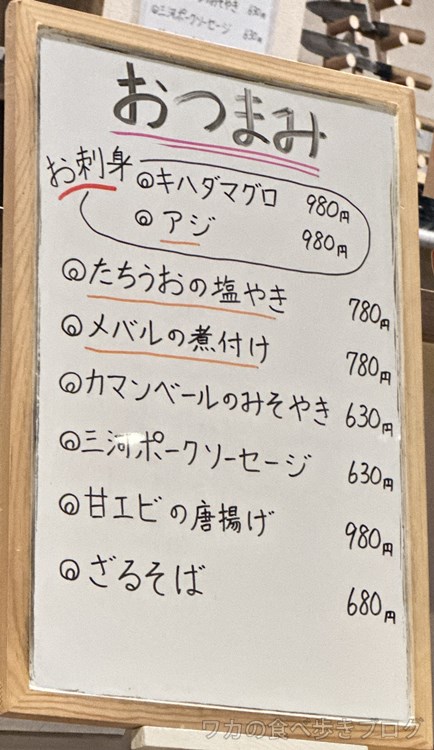 みそやき 630円
◎三河ポークソーセージ 630円
おつまみ
お刺身
◎キハダマグロ 980円
◎アジ 980円
◎たちうおの塩やき 780円
◎メバルの煮付け 780円
◎カマンベールのみそやき 630円
◎三河ポークソーセージ 630円
◎甘エビの唐揚げ 980円
◎ざるそば 680円
ワカの食べ歩きブログ